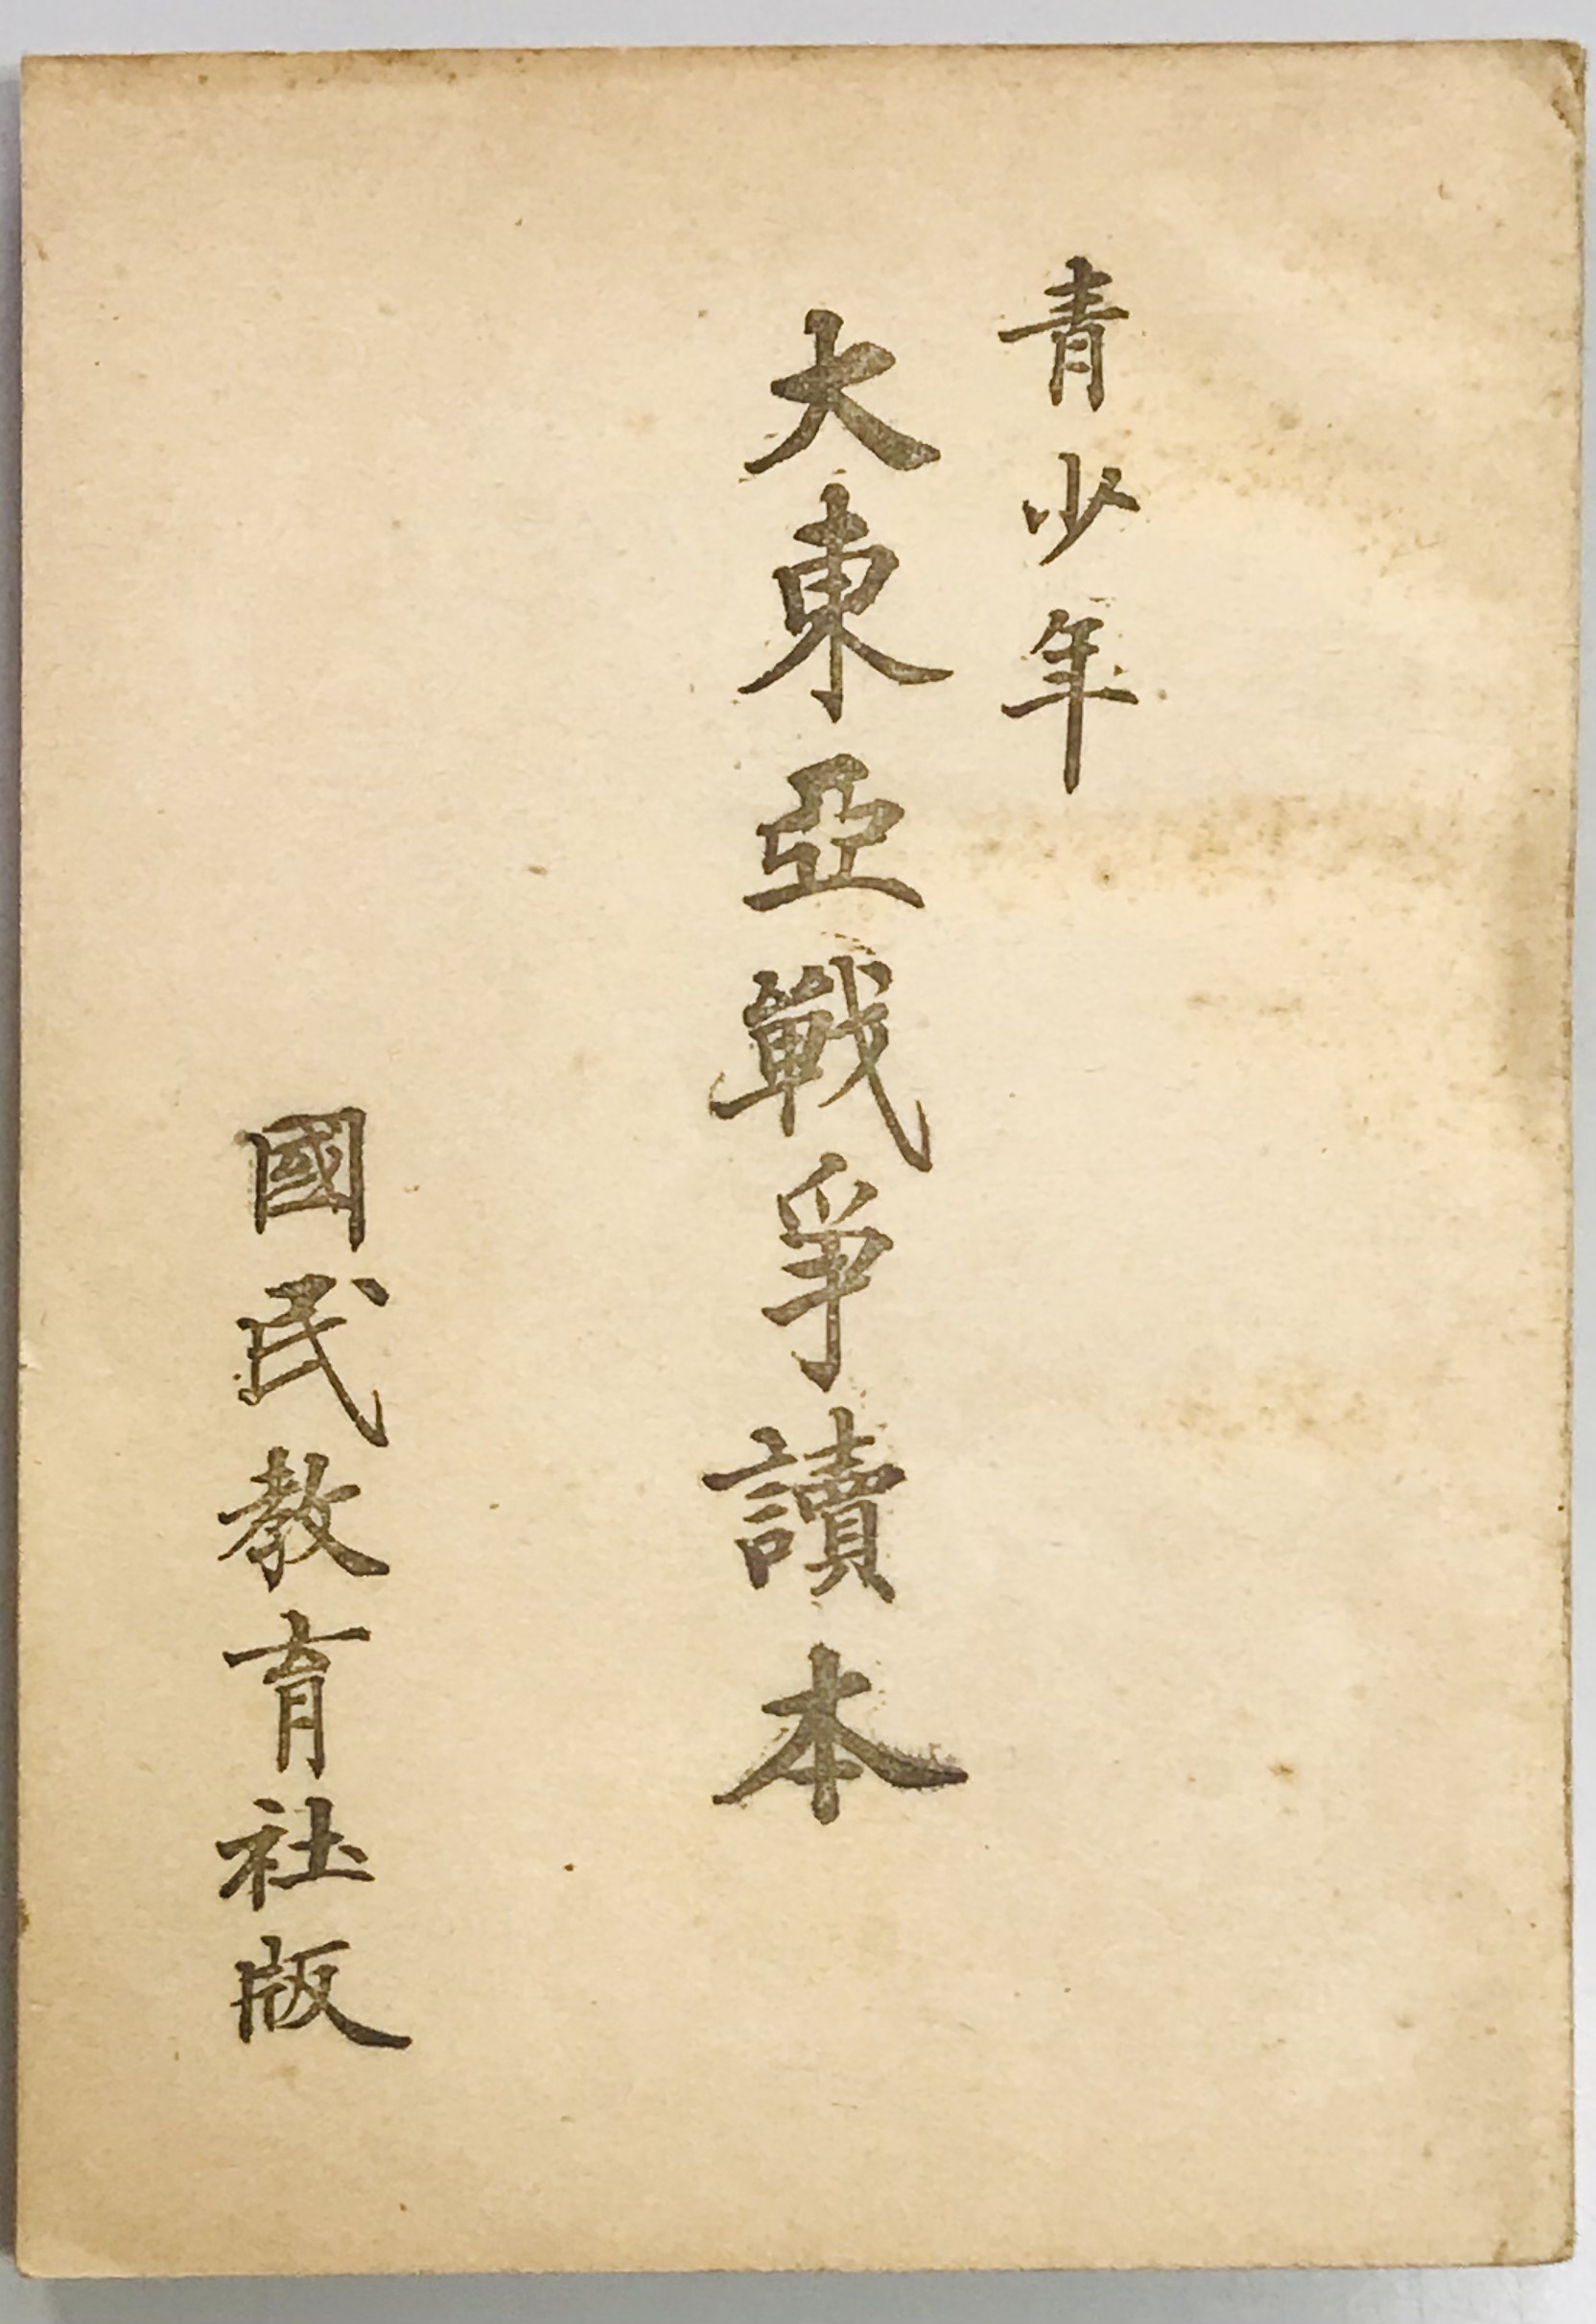 青少年
大東亞戰爭讀本
國民教育社版